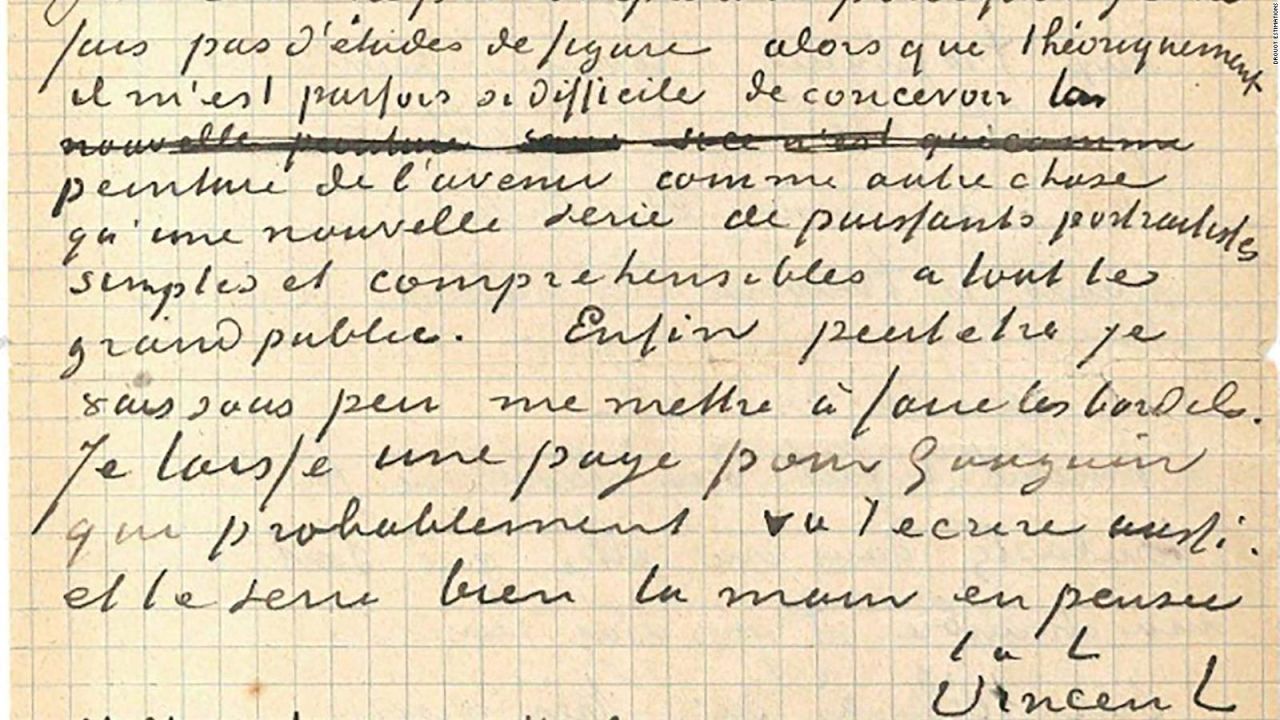 fais pas d'études de figure alors que théoriquement
il m'est parfois si difficile de concevoir la
nouvelle peinture sans si ce n'est que comme
peinture de l'avenir comme autre chose
qu'une nouvelle serie de puissants portraitistes
simples et comprehensibles a tout le
grand public. Enfin peut etre je
vais sous peu me mettre à faire les bordels.
Je laisse une page pour Gauguin
qui probablement va t'ecrire aussi.
et te serre bien la main en pensée
t. à t.
Vincent
DROUOT ESTIMATIONS